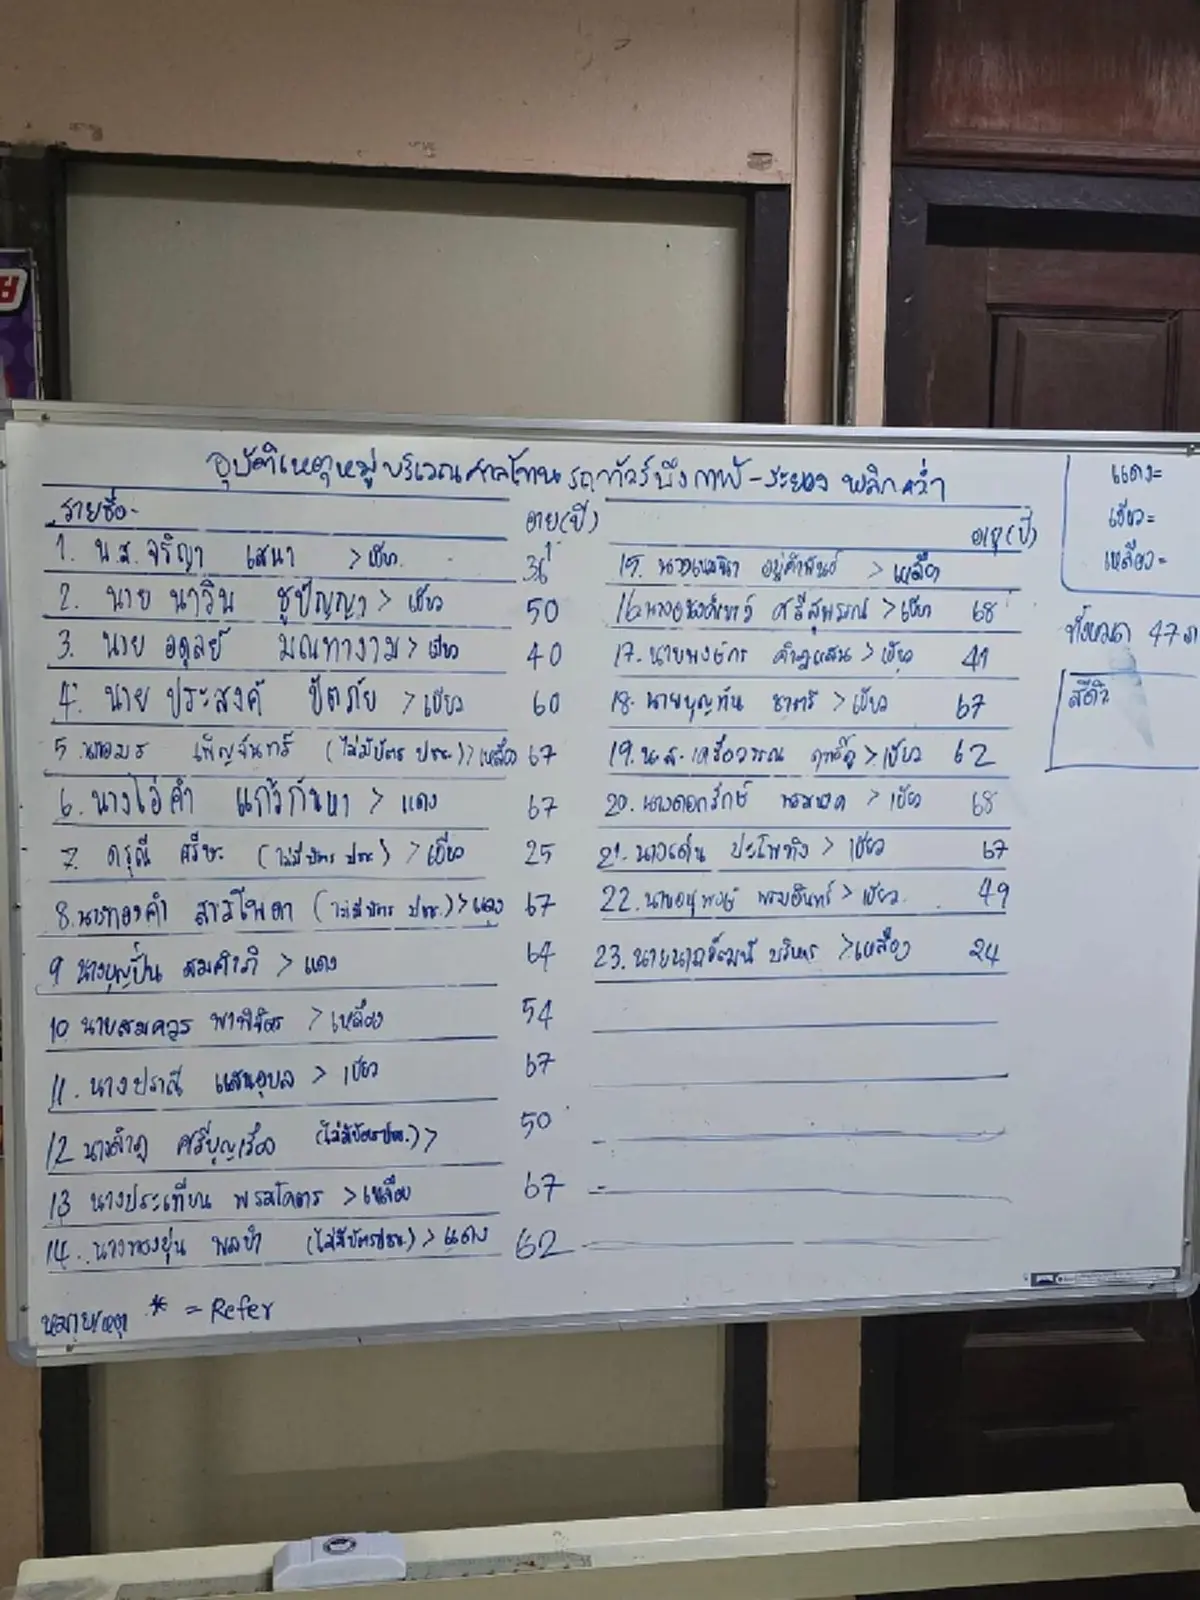 อุบัติเหตุหมู่บริเวณศาลโทน รถทัวร์บึงกาฬ - ระยอง พลิกคว่ำ
รายชื่อ- อายุ(ปี)
1. น.ส. จริญา เสนา > เขียว 36
2. นาย นาวิน ชูปัญญา > เขียว 50
3. นาย อดุลย์ มณฑางาม > เขียว 40
4. นาย ประสงค์ ปัตภัย > เขียว 60
5. เพ็ญจันทร์ (ไม่มีบัตร ปชช.) > เหลือง 67
6. นางไอ่คำ แก้วกันหา > แดง 67
7. ดรุณี ศรีษะ (ไม่มีบัตร ปชช.) > เขียว 25
8. นางทองคำ สารโพคา (ไม่มีบัตร ปชช.) > แดง 67
9 นางบุญปั่น สมคำภี > แดง 64
10 นายสมควร พาพิจิตร > เหลือง 54
11. นางปราณี แสนอุบล > เขียว 67
12 นางลำภู ศรีบุญเรือง (ไม่มีบัตรปชช.) > 50
13 นางประเทียน พรมโคตร > เหลือง 67
14. นางทองปุ่น พลขำ (ไม่มีบัตรปชช.) > แดง 62
หมายเหตุ * = Refer
อายุ(ปี)
15. อยู่คำพันธ์ > เหลือง
16. ศรีสุพรรณ์ > เขียว 68
17. นายพงษ์กร > เขียว 41
18. นายบุญทัน ชาตรี > เขียว 67
19. น.ส. เครือวรรณ > เขียว 62
20. นางดอกรักษ์ > เขียว 68
21. นางเด่น ปะโพทิง > เขียว 67
22. นายอนุพงษ์ พรมอินทร์ > เขียว 49
23. บริหาร > เหลือง 24
แดง=
เขียว=
เหลือง=
ทั้งหมด 47